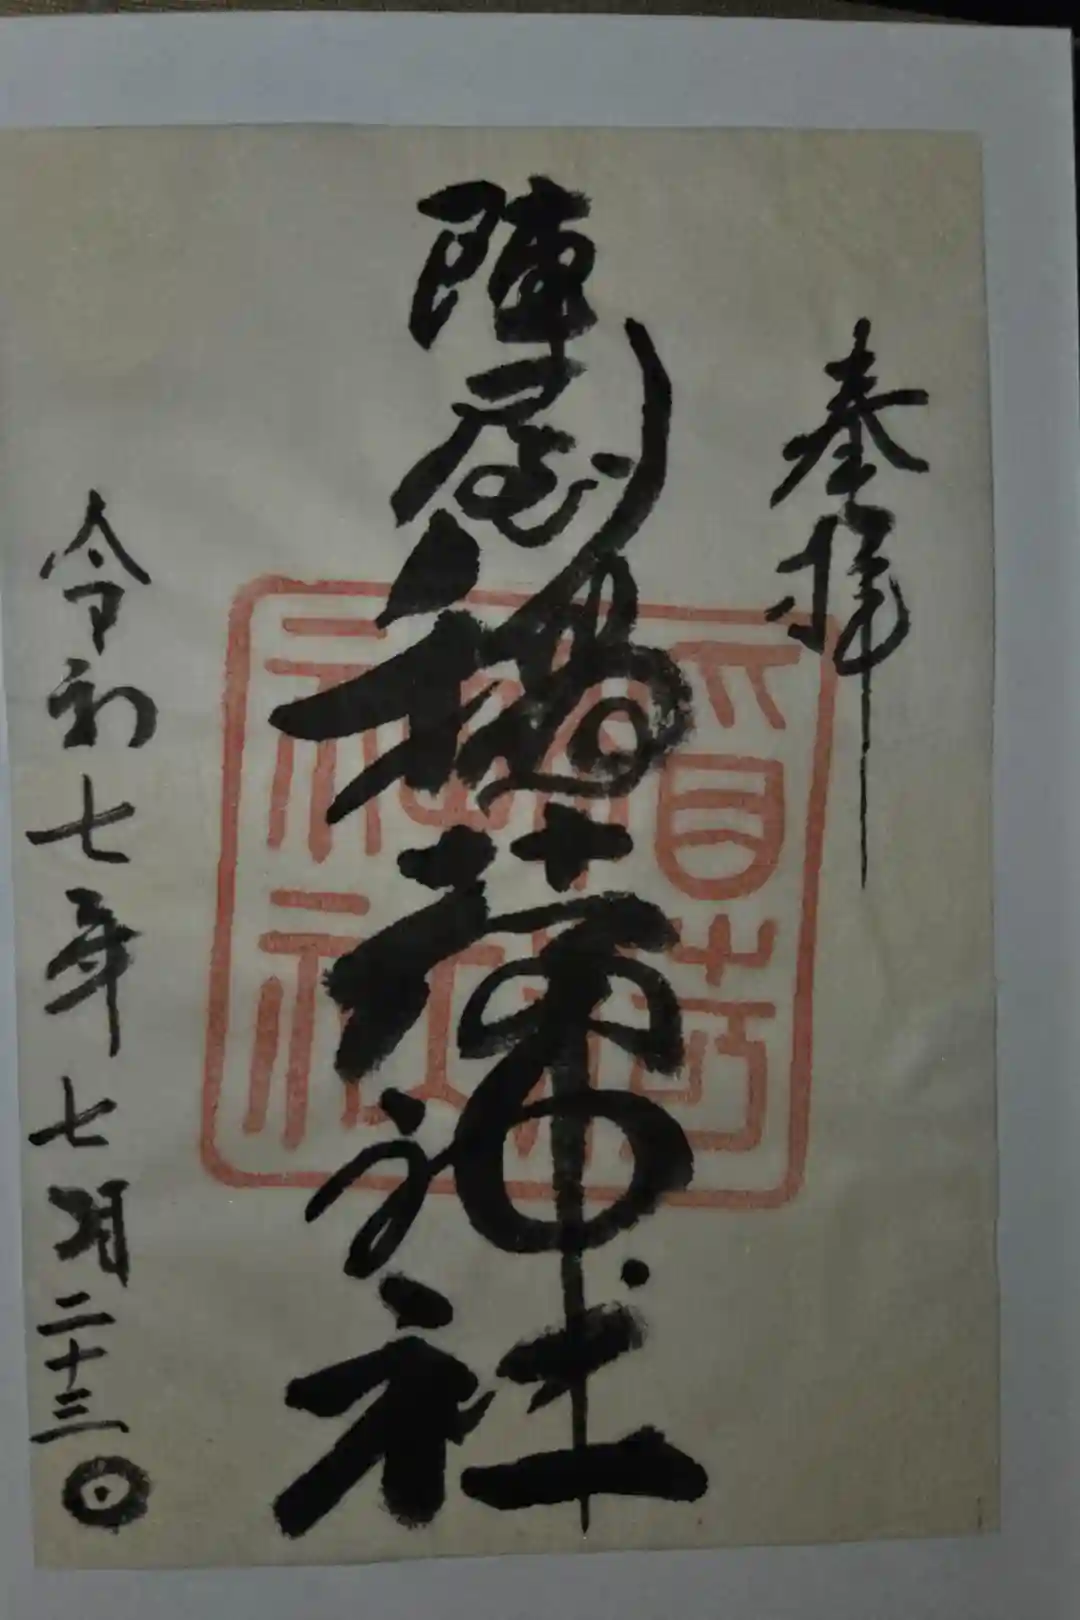 奉拝
陣屋稲荷神社
令和七年七月二十三日